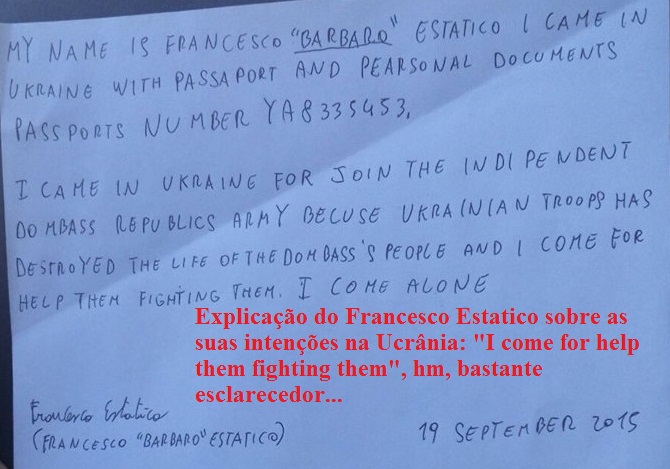 MY NAME IS FRANCESCO "BARBARO" ESTATICO I CAME IN
UKRAINE WITH PASSAPORT AND PEARSONAL DOCUMENTS
PASSPORTS NUMBER YA8335453.
I CAME IN UKRAINE FOR JOIN THE INDIPENDENT
DOMBASS REPUBLICS ARMY BECUSE UKRAINIAN TROOPS HAS
DESTROYED THE LIFE OF THE DOMBASS'S PEOPLE AND I COME FOR
HELP THEM FIGHTING THEM. I COME ALONE
Explicação do Francesco Estatico sobre as
suas intenções na Ucrânia: "I come for help
them fighting them", hm, bastante
esclarecedor...
Francesco Estatico
(FRANCESCO "BARBARO" ESTATICO)
19 SEPTEMBER 2015